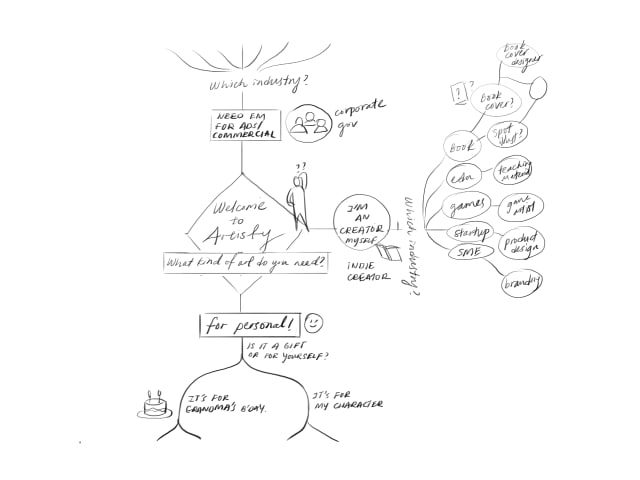 Which industry?
NEED EM
FOR ADS/
COMMERCIAL
corporate
gov
??
Welcome
to
Artisfy
What kind of art do you need?
I'M
AN
CREATOR
MYSELF
INDIE
CREATOR
Which industry?
book
cover
designer
?
?
book
cover?
spot
illust?
Book
edu
teaching
material
games
game
artist
startup
SME
product
design
branding
for personal!
IS IT A GIFT
OR FOR YOURSELF?
IT'S FOR
GRANDMA'S B'DAY.
IT'S FOR
MY CHARACTER